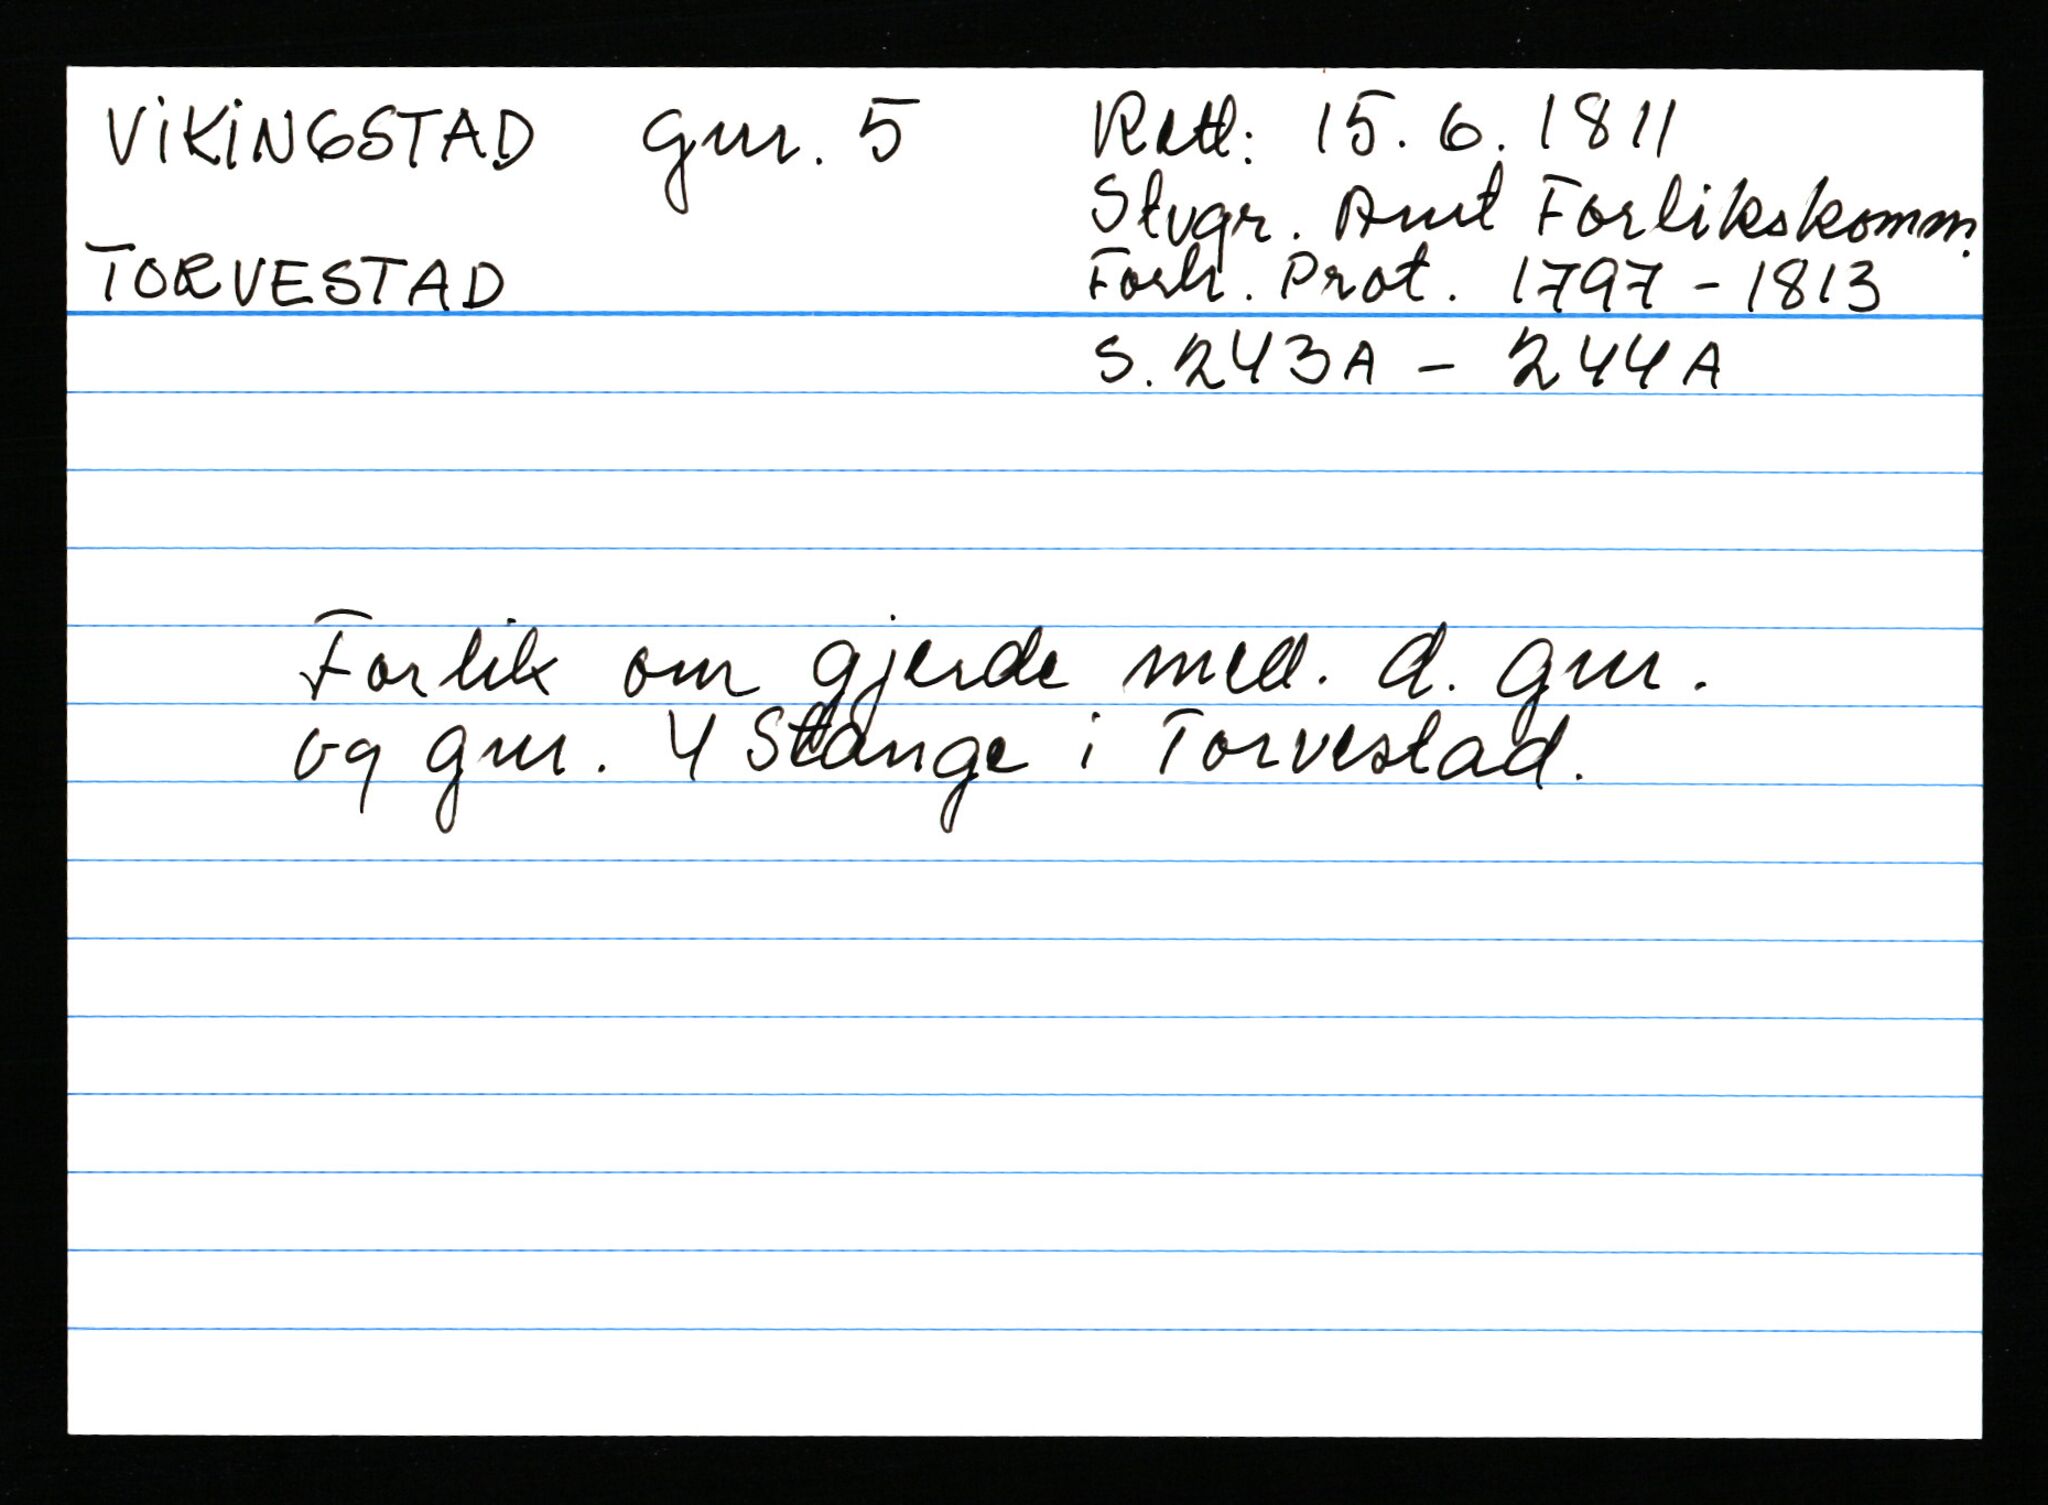 VIKINGSTAD gnr. 5
TORVESTAD
Rettl: 15.6.1811
Stvgr. Amt Forlikskomm.
Forh. Prot. 1797 - 1813
S. 243A - 244A
Forlik om gjerde mell. d. gnr.
og gnr. 4 Stange i Torvestad.